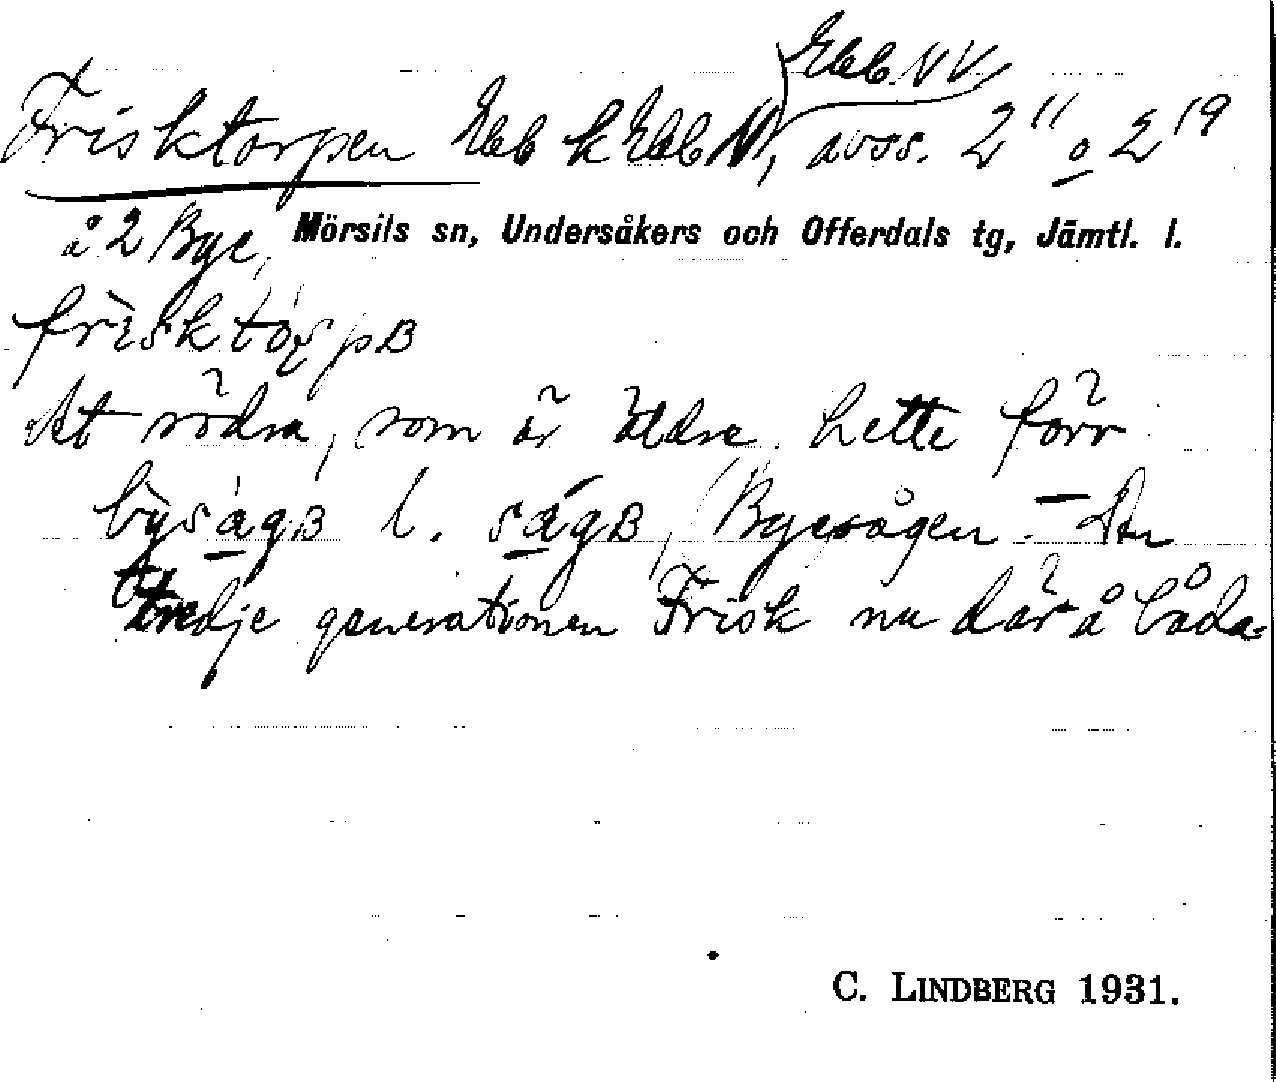 Ebb NV,
Frisktorpen Ebb k Ebb N, avss. 2¹¹ o 2¹⁹
å 2 Bye,
Mörsils sn, Undersåkers och Offerdals tg, Jämtl. l.
frìsktórpʙ
Det södra, som är äldre, hette förr
bỳságʙ l. ságʙ, Byesågen. – Den
tredje generationen Frisk nu där å båda.
C. LINDBERG 1931.